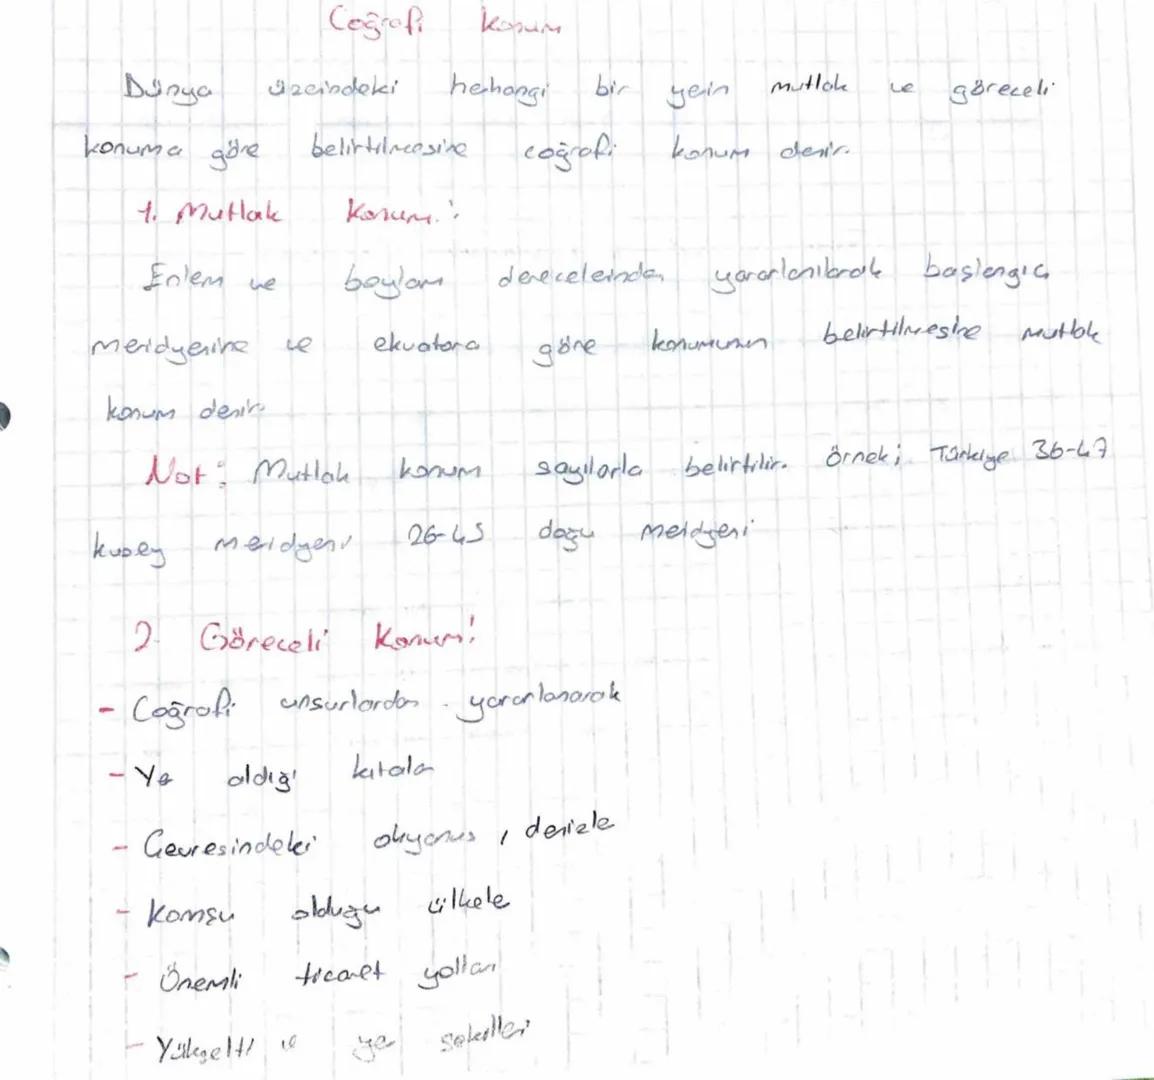 Coğrafi Konum
Dünya üzeindeki hehangi bir yein mutlak ve göreceli
konuma göre belirtilmesine coğrafi konum denir.
1. Mutlak Konum:
Enlem ve boylam derecelerinden yararlanılarak başlangıç
meridyenine ve ekvatora göre konumunun belirtilmesine mutlak
konum denir
Not: Mutlak konum sayılarla belirtilir. Örnek; Türkiye 36-42
kuzey meridyeni 26-45 doğu meridyeni
2. Göreceli Konum:
- Coğrafi unsurlardan yararlanarak
- Ye aldığı kıtala
- Çevresindeki okyanus, denizle
- Komşu olduğu ülkele
- Önemli ticaret yolları
- Yükselti ve ye şekilleri